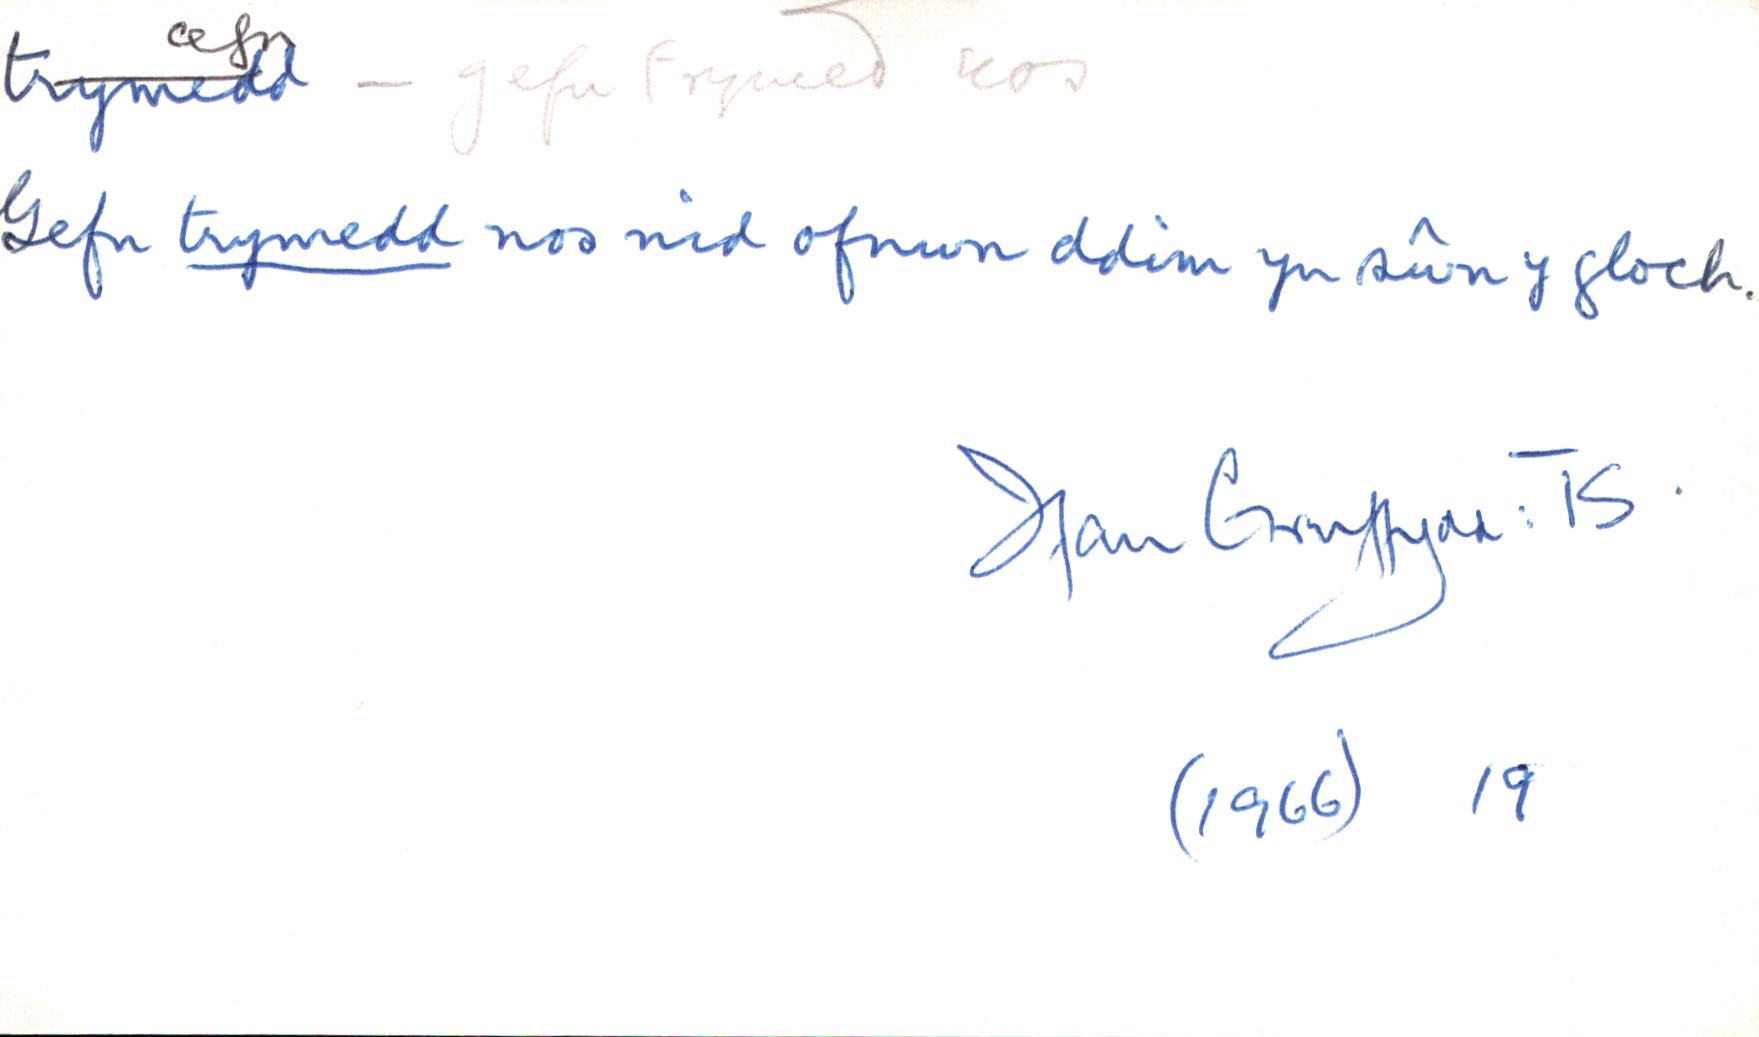 cefn
trymedd — gefn trymedd nos
Gefn trymedd nos nid ofnwn ddim yn sŵn y gloch.
Gwruffydd: TS.
(1966) 19